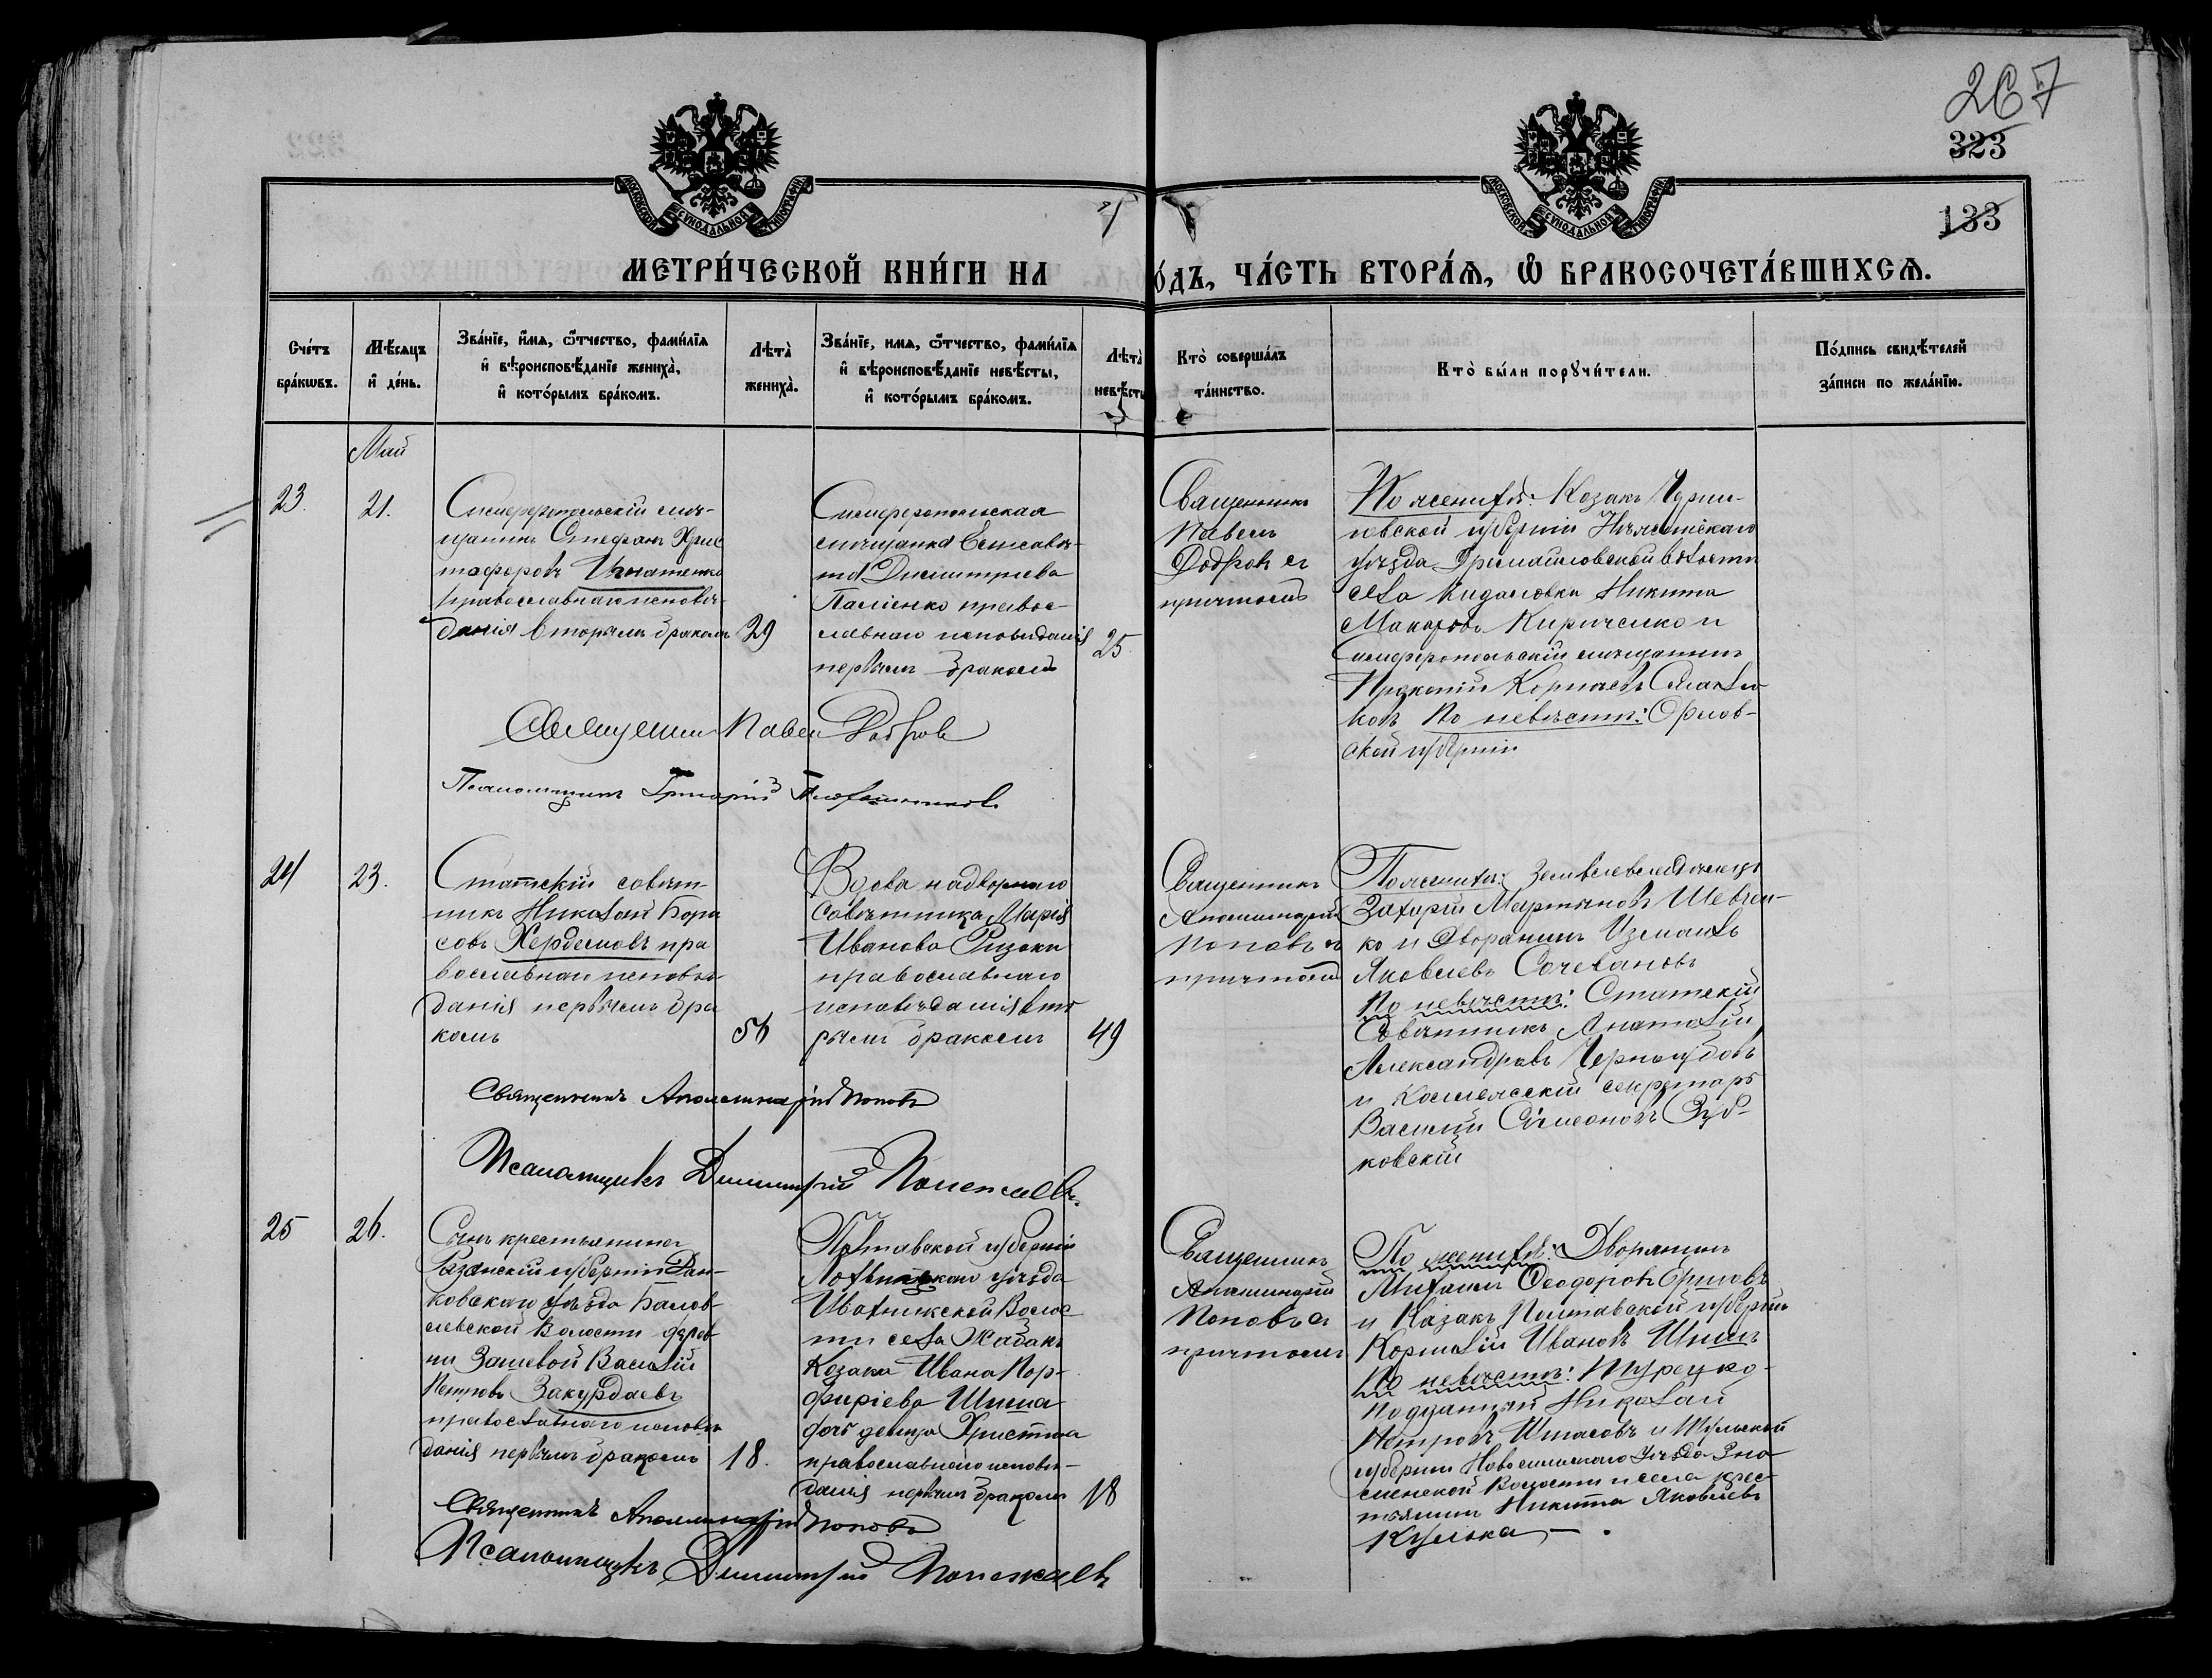 267
323
133
МОСКОВСКОЙ СѴНОДАЛЬНОЙ ТИПОГРАФІИ
МОСКОВСКОЙ СѴНОДАЛЬНОЙ ТИПОГРАФІИ
МЕТРИ́ЧЕСКОЙ КНИ́ГИ НА
О́ДЪ, ЧА́СТЬ ВТОРА́Ѧ, Ѽ БРАКОСОЧЕТА́ВШИХСѦ.
Сче́тъ бра́кωвъ.
Мѣ́сяцъ и҆ де́нь.
Зва́нїе, и҆́мѧ, ѻ҆́тчество, фами́лїѧ
и҆ вѣроисповѣ́данїе жениха̀,
и҆ кото́рымъ бра́комъ.
Лѣта̀ жениха̀.
Зва́нїе, имѧ, ѻ҆́тчество, фами́лїѧ
и҆ вѣроисповѣ́данїе невѣ́сты,
и҆ кото́рымъ бра́комъ.
Лѣта̀ невѣ́сты
Кто̀ соверша́лъ
та́инство.
Кто̀ бы́ли порꙋчи́тели.
По́дпись свидѣ́телей
за́писи по жела́нїю.
Май
23.
21.
Симферопольскій мѣ-
щанинъ Стефанъ Хрис
тофоровъ Игнатенко
православнаго исповѣ-
данія вторымъ бракомъ
29
Симферопольская
мѣщанка Елисаве-
та Димитріева
православнаго исповѣданія
первымъ бракомъ
25.
Священникъ
Павелъ
Добровъ съ
причтомъ
По женихѣ: Козакъ Черни-
говской губерніи Нѣжинскаго
уѣзда
села Никита
Макаровъ Кириченко и
Симферопольскій мѣщанинъ
По невѣстѣ: Орлов-
ской губерніи
Священникъ Павелъ Добровъ
Псаломщикъ Григорій
24
23.
Статскій совѣт-
никъ Николай Бори
совъ Хердемовъ пра
вославнаго исповѣ-
данія первымъ бра
комъ
56
Вдова надворнаго
совѣтника Марія
Иванова Ризоки
православнаго
исповѣданія вто
рымъ бракомъ
49
Священникъ
Аполинарій
Поповъ съ
причтомъ
По женихѣ: Землевладѣлецъ
Захарій Мартыновъ Шевчен-
ко и Дворянинъ Измаилъ
Яковлевъ
По невѣстѣ: Статскій
Совѣтникъ Анатолій
Александровъ Чернагубовъ
и Коллежскій секретарь
Василій Симеоновъ Зуб-
ковскій
Священникъ Аполинарій Поповъ
Псаломщикъ Димитрій Полежаевъ
25
26.
Сынъ крестьянина
Рязанской губерніи Дан-
ковскаго уѣзда Балов-
невской волости дерев
ни Василій
Петровъ Закурдаевъ
православнаго исповѣ
данія первымъ бракомъ
18.
Полтавской губерніи
Лохвицкаго уѣзда
Ивахникской Волос
ти села Жабокъ
Козака Ивана Пор-
фиріева Шиша
дочь девица Христина
православнаго исповѣ-
данія первымъ бракомъ
18
Священникъ
Аполинарій
Поповъ съ
причтомъ
По женихѣ: Дворянинъ
Михаилъ Ѳеодоровъ Ермовъ
и Казакъ Полтавской губерніи
Корнилій Ивановъ Шишъ
По невѣстѣ: Турецко-
подданный Николай
Петровъ и Тульской
губерніи Новосильскаго Уѣзда Зна
менской Волости и села крес-
тьянинъ Никита Яковлевъ
Священникъ Аполинарій Поповъ
Псаломщикъ Димитрій Полежаевъ